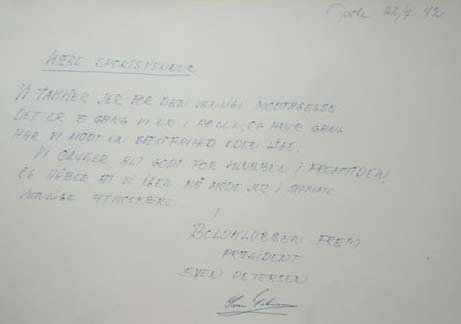 Opole 22/7-72
KÆRE SPORTSVENNER
VI TAKKER JER FOR DEN VENLIGE MODTAGELSE
DET ER 2 GANG VI ER I POLEN, OG HVER GANG
HAR VI MØDT EN GESTFRIHED UDEN LIGE.
VI ØNSKER ALT GODT FOR KLUBBEN I FREMTIDEN
OG HÅBER AT VI IGEN MÅ MØDE JER I SAMME
VENLIGE ATMOSFÆRE
BOLDKLUBBEN FREM
PRÆSIDENT
SVEN PETERSEN